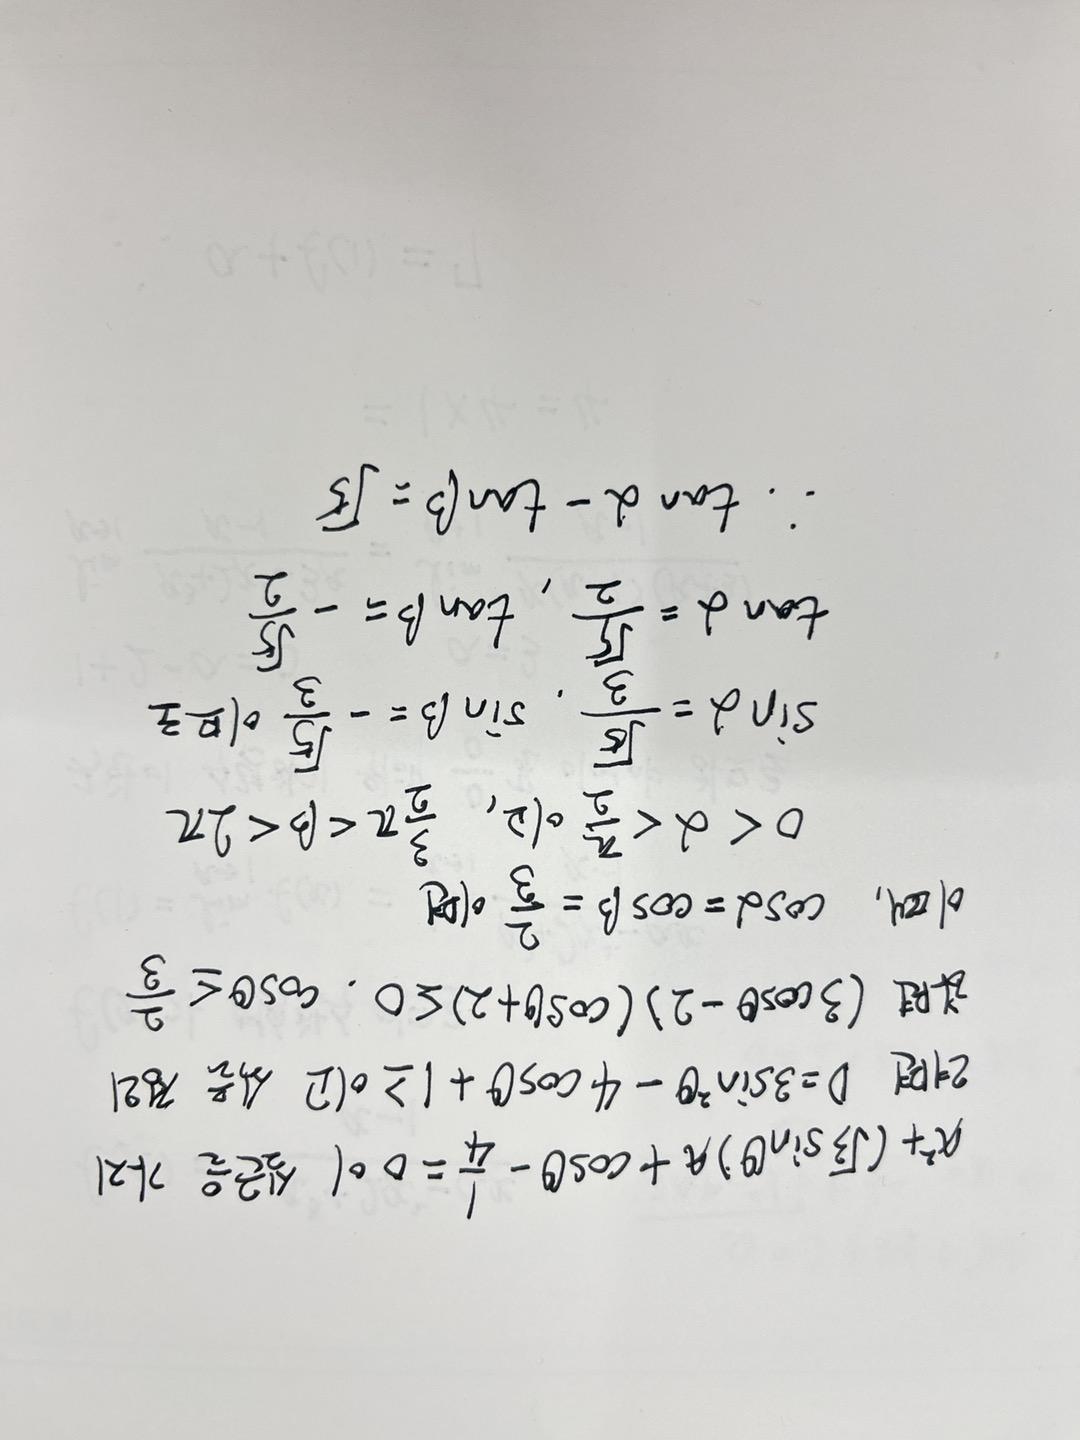 x²+(√3 sinθ)x+cosθ-1/4=0 이 실근을 가지
려면 D=3sin²θ-4cosθ+1≥0이고 식을 정리
하면 (3cosθ-2)(cosθ+2)≤0. cosθ≤2/3
이때, cosα=cosβ=2/3이면
0<α<π/2이고, 3/2π<β<2π
sinα=√5/3. sinβ=-√5/3 이므로
tanα=√5/2, tanβ=-√5/2
∴ tanα-tanβ=√5